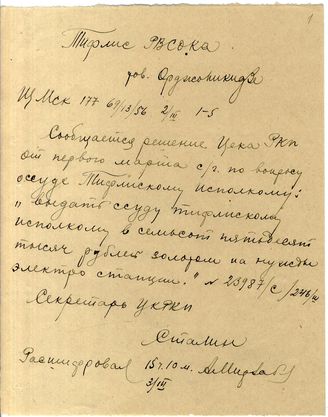 1
Тифлис РВСОКА
тов. Орджоникидзе
Щ Мск 177 69/13/56 2/III 1-5
Сообщается решение Цека РКП
от первого марта с/г. по вопросу
ссуде Тифлисскому исполкому:
„выдать ссуду тифлисскому
исполкому в семьсот пятьдесят
тысяч рублей золотом на нужды
электро станции." № 23987/с/246/ш
Секретарь ЦКРКП
Сталин
Расшифровал 15ч.10м.
3/III